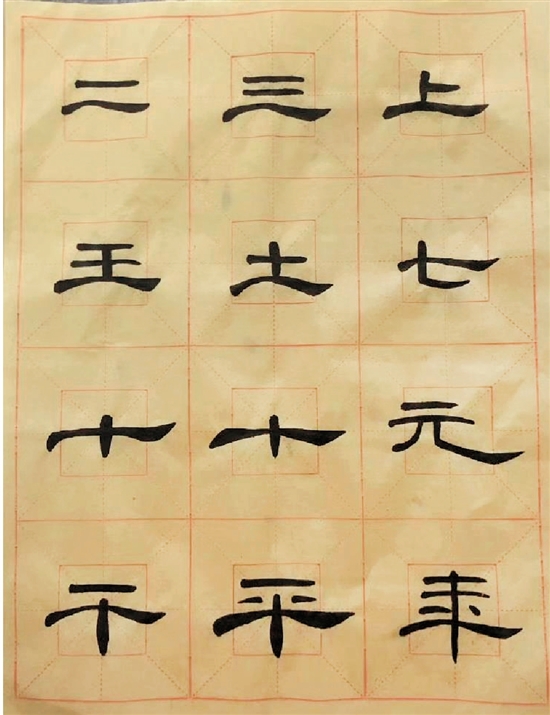 二三上
王土七
十十元
干平年